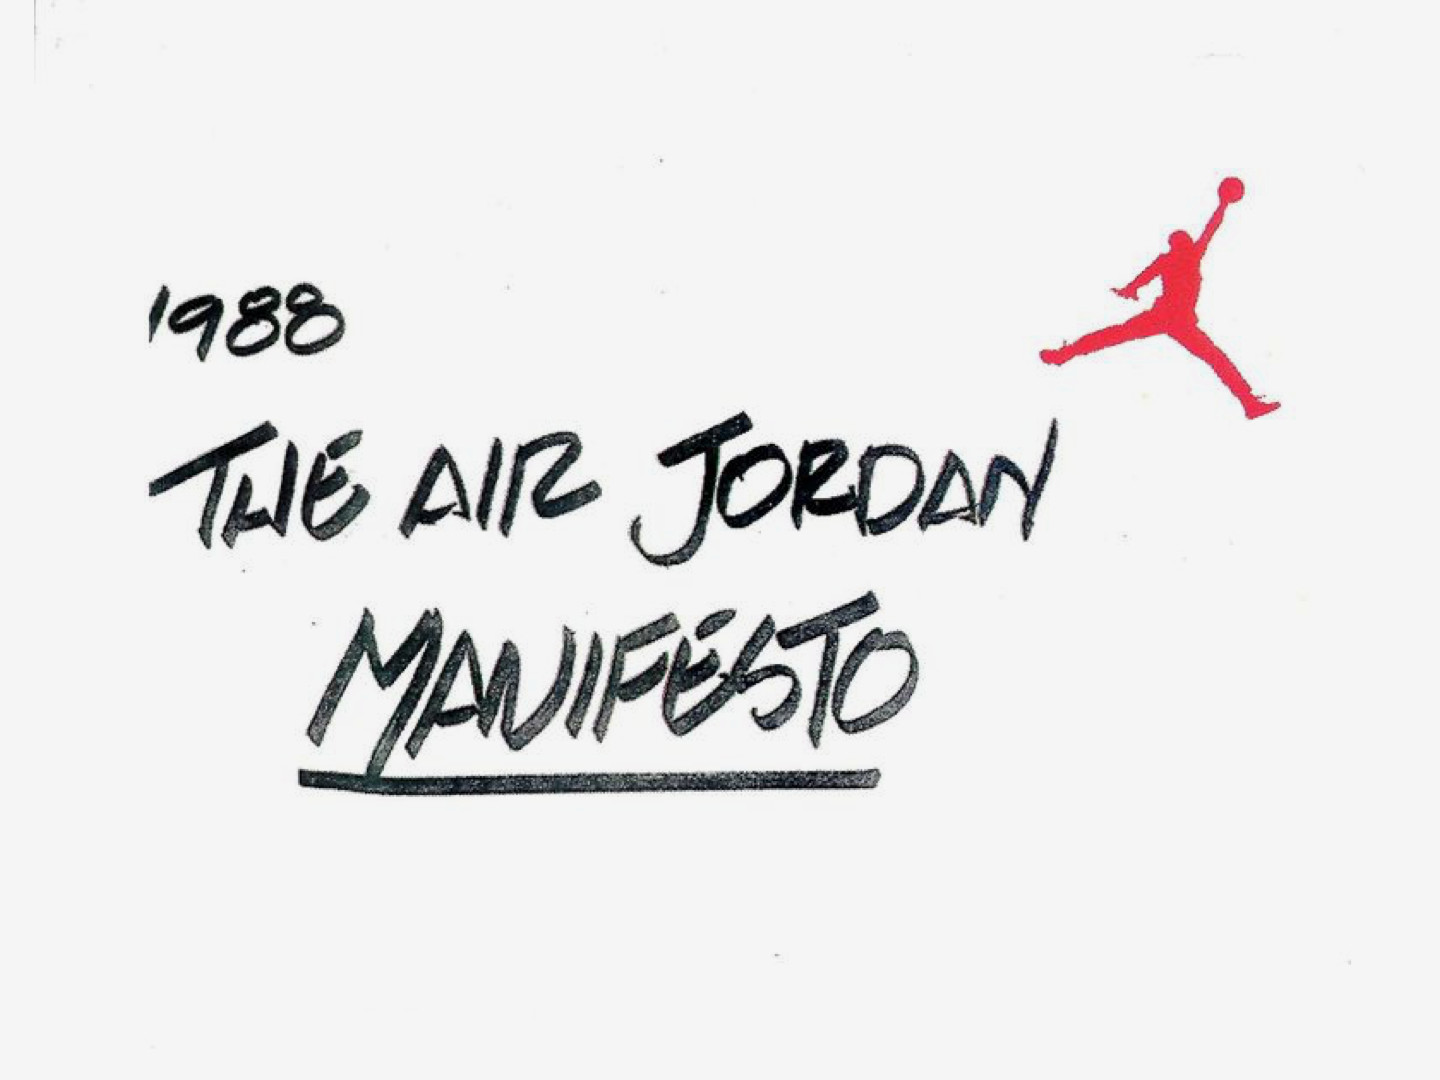 1988
THE AIR JORDAN
MANIFESTO